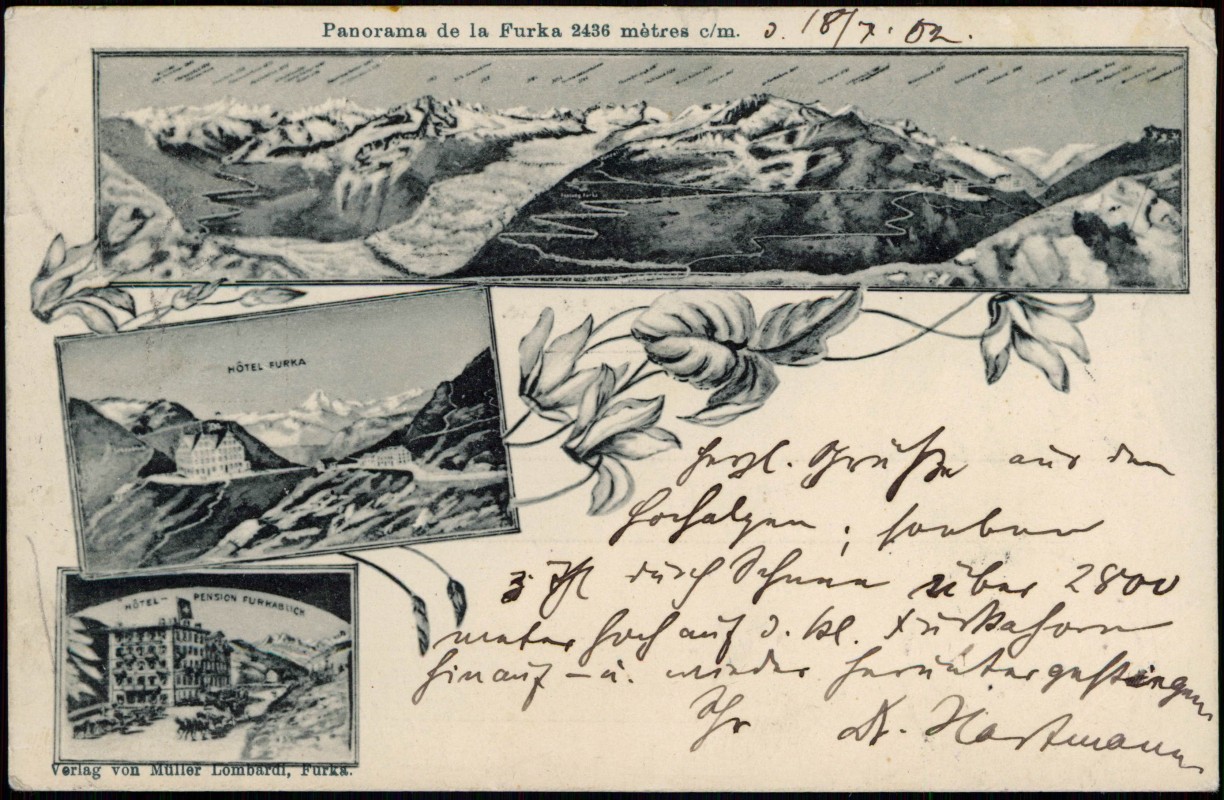 Panorama de la Furka 2436 mètres c/m. d. 18/7. 02.
HÔTEL FURKA
herzl. Grüße aus den
Hochalpen; soeben
3 Std durch Schnee über 2800
meter hoch auf d. kl. Furkahorn
hinauf - u. wieder heruntergestiegen
Ihr Dr. Hartmann
HÔTEL - PENSION FURKABLICK
Verlag von Müller Lombardi, Furka.